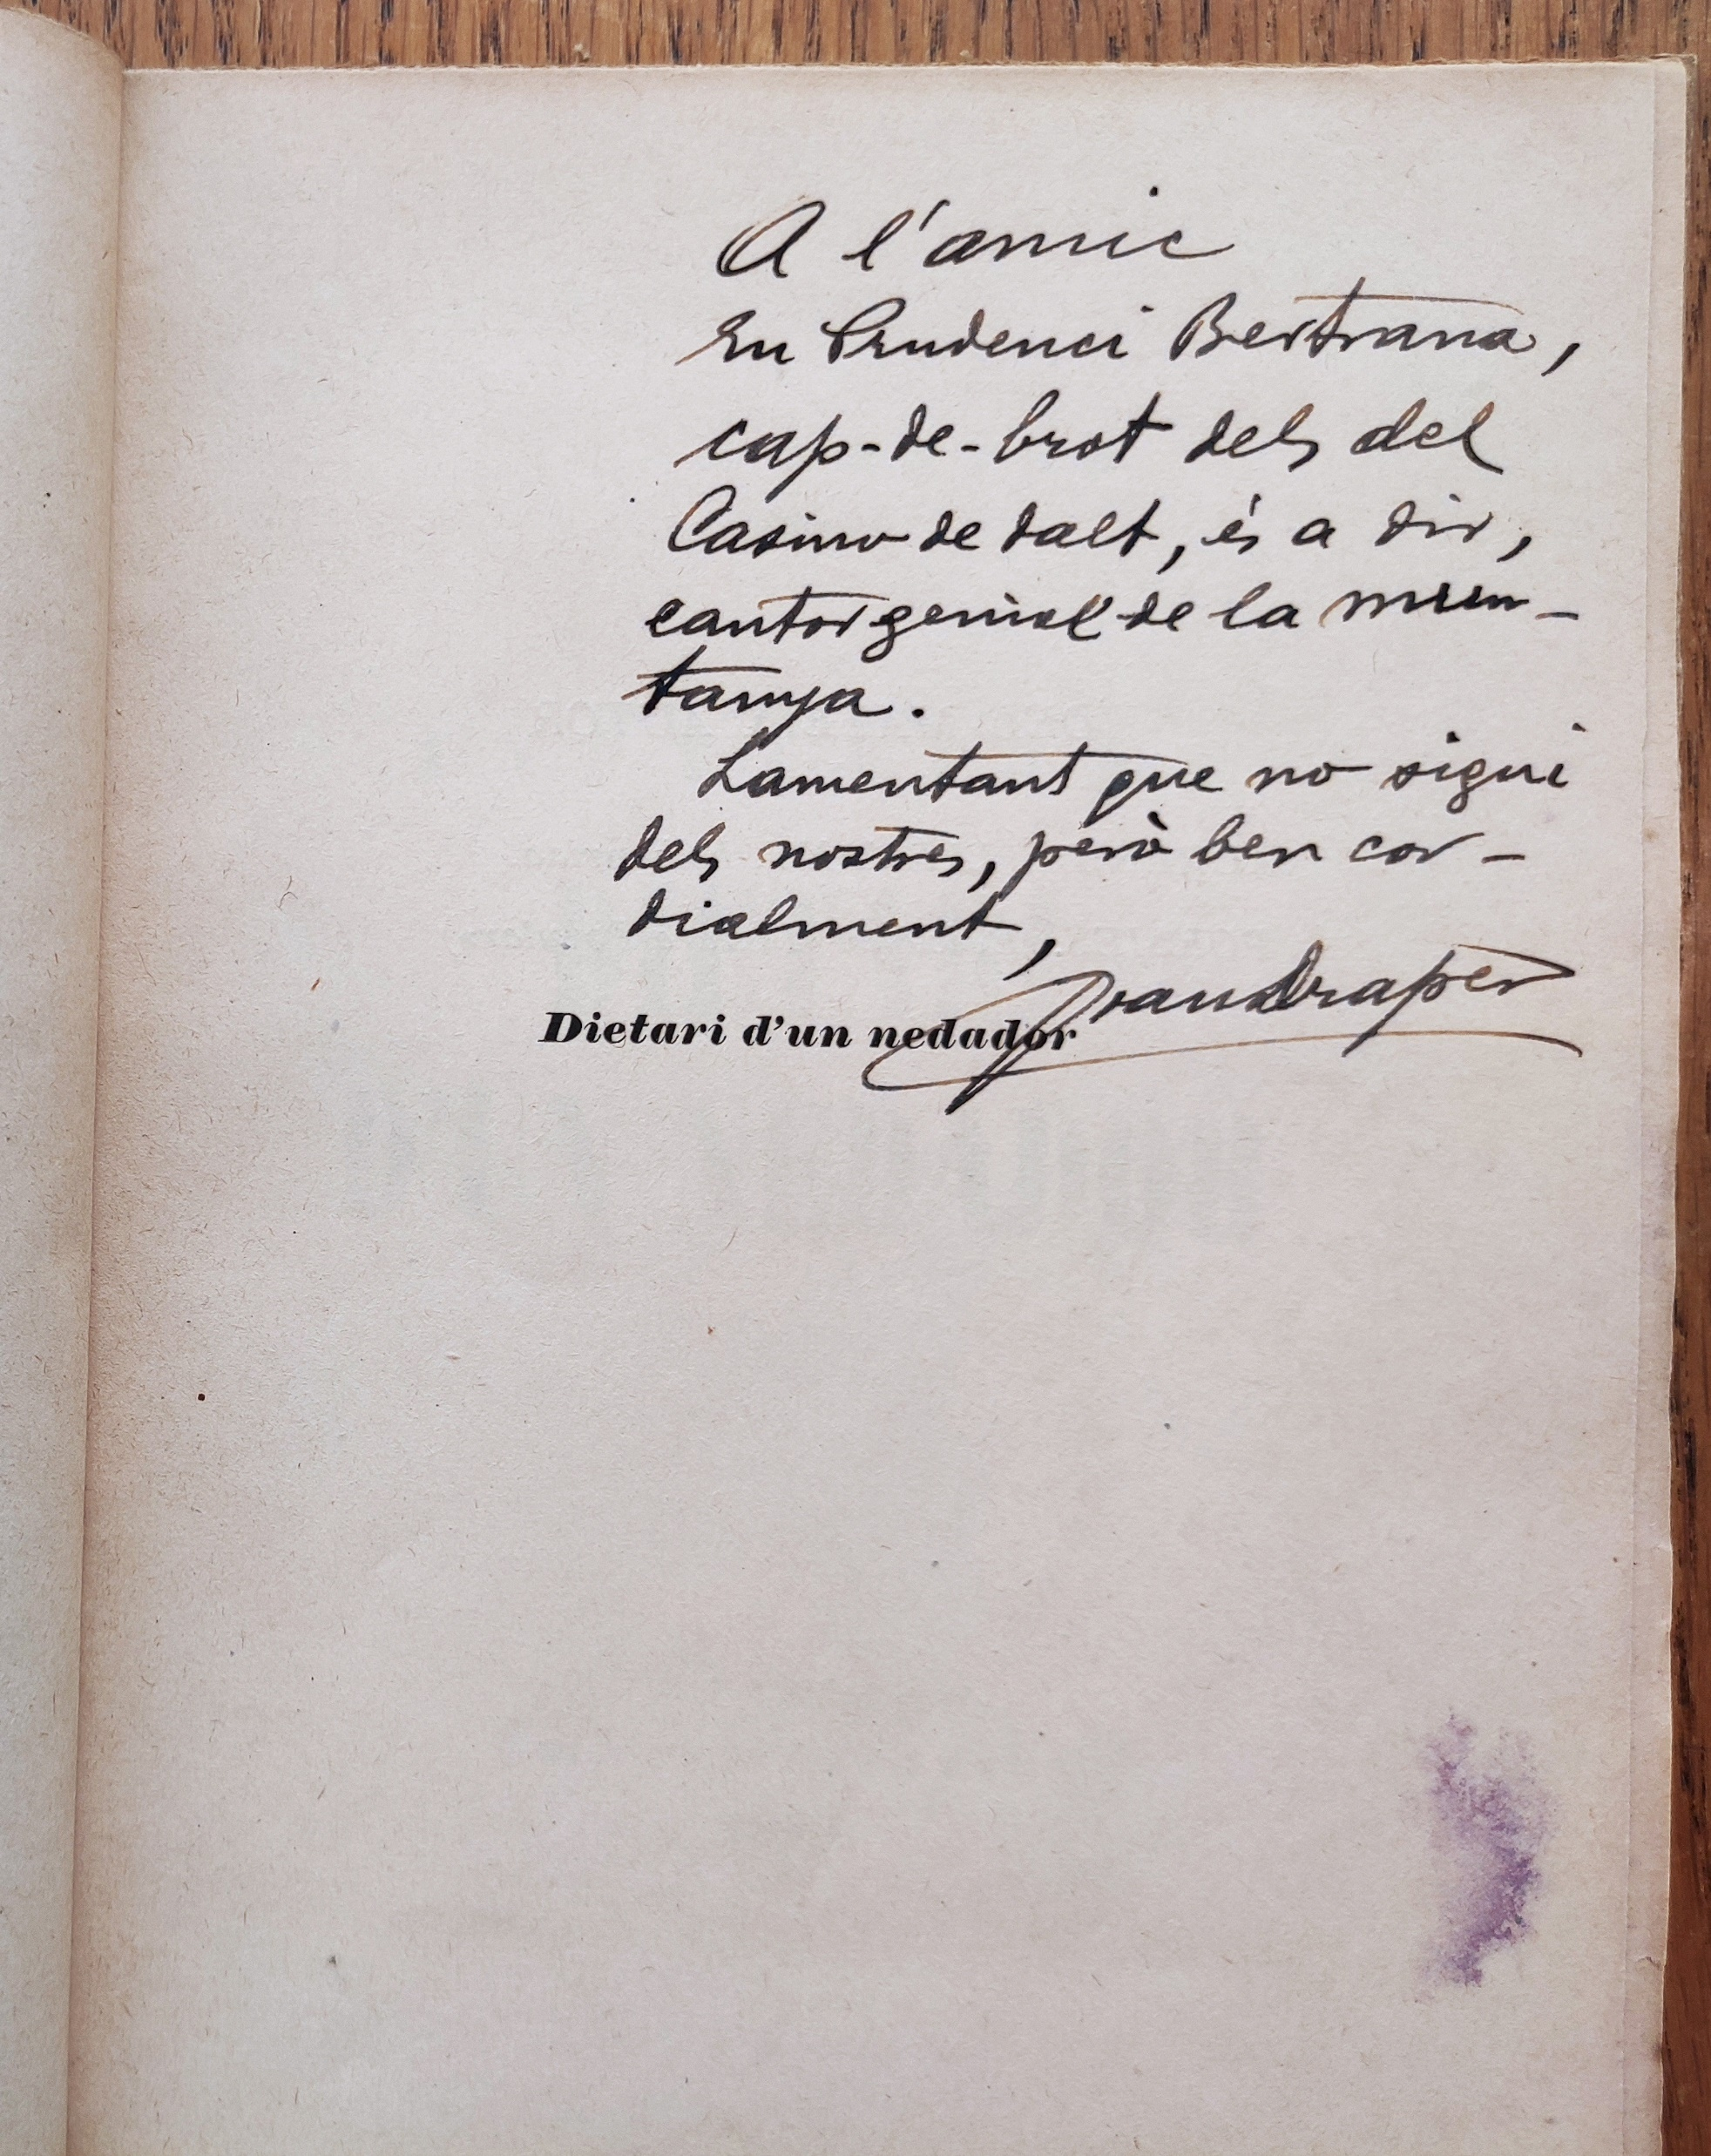 A l'amic
En Prudenci Bertrana,
cap-de-brot dels del
Casino de dalt, és a dir,
cantor genial de la mun-
tanya.
Lamentant que no sigui
dels nostres, però ben cor-
dialment,
Joan Draper
Dietari d'un nedador